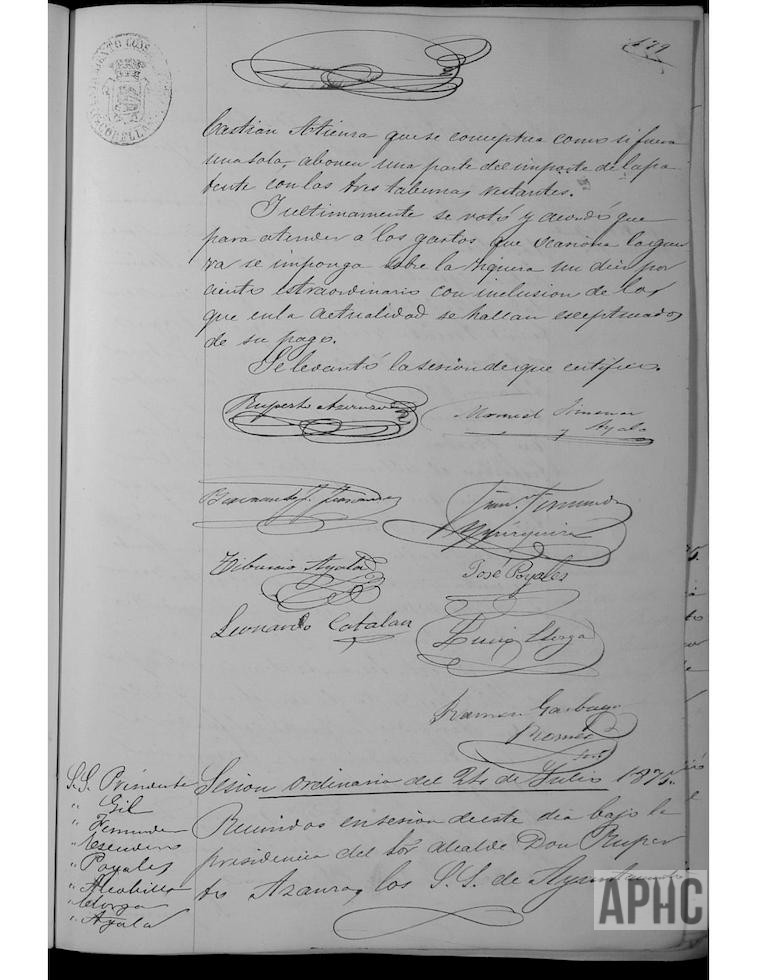 179
bastian Atienza que se conceptua como si fuera
una sola, abonen una parte del importe de la pa-
tente con las tres tabernas restantes.
Y ultimamente se votó y acordó que
para atender á los gastos que ocasiona la guer
ra se imponga sobre la riqueza un diez por
ciento estraordinario con inclusion de los
que en la actualidad se hallan exceptuados
de su pago.
Se levantó la sesion de que certifico.
Ruperto Azanza
Manuel Jimenez
y Ayala
Fernandez
Tiburcio Ayala
José Poyales
Leonardo Catalan
Llorza
Ramon Garbayo
Sesion ordinaria del 24 de Julio 1875.
S.S. Presidente
" Gil
" Fernandez
" Escudero
" Poyales
" Alcabilla
" Llorza
" Ayala
Reunidos en sesion de este dia bajo la
presidencia del Sor. alcalde Don Ruper
to Azanza, los S.S. de Ayuntamiento
APHC